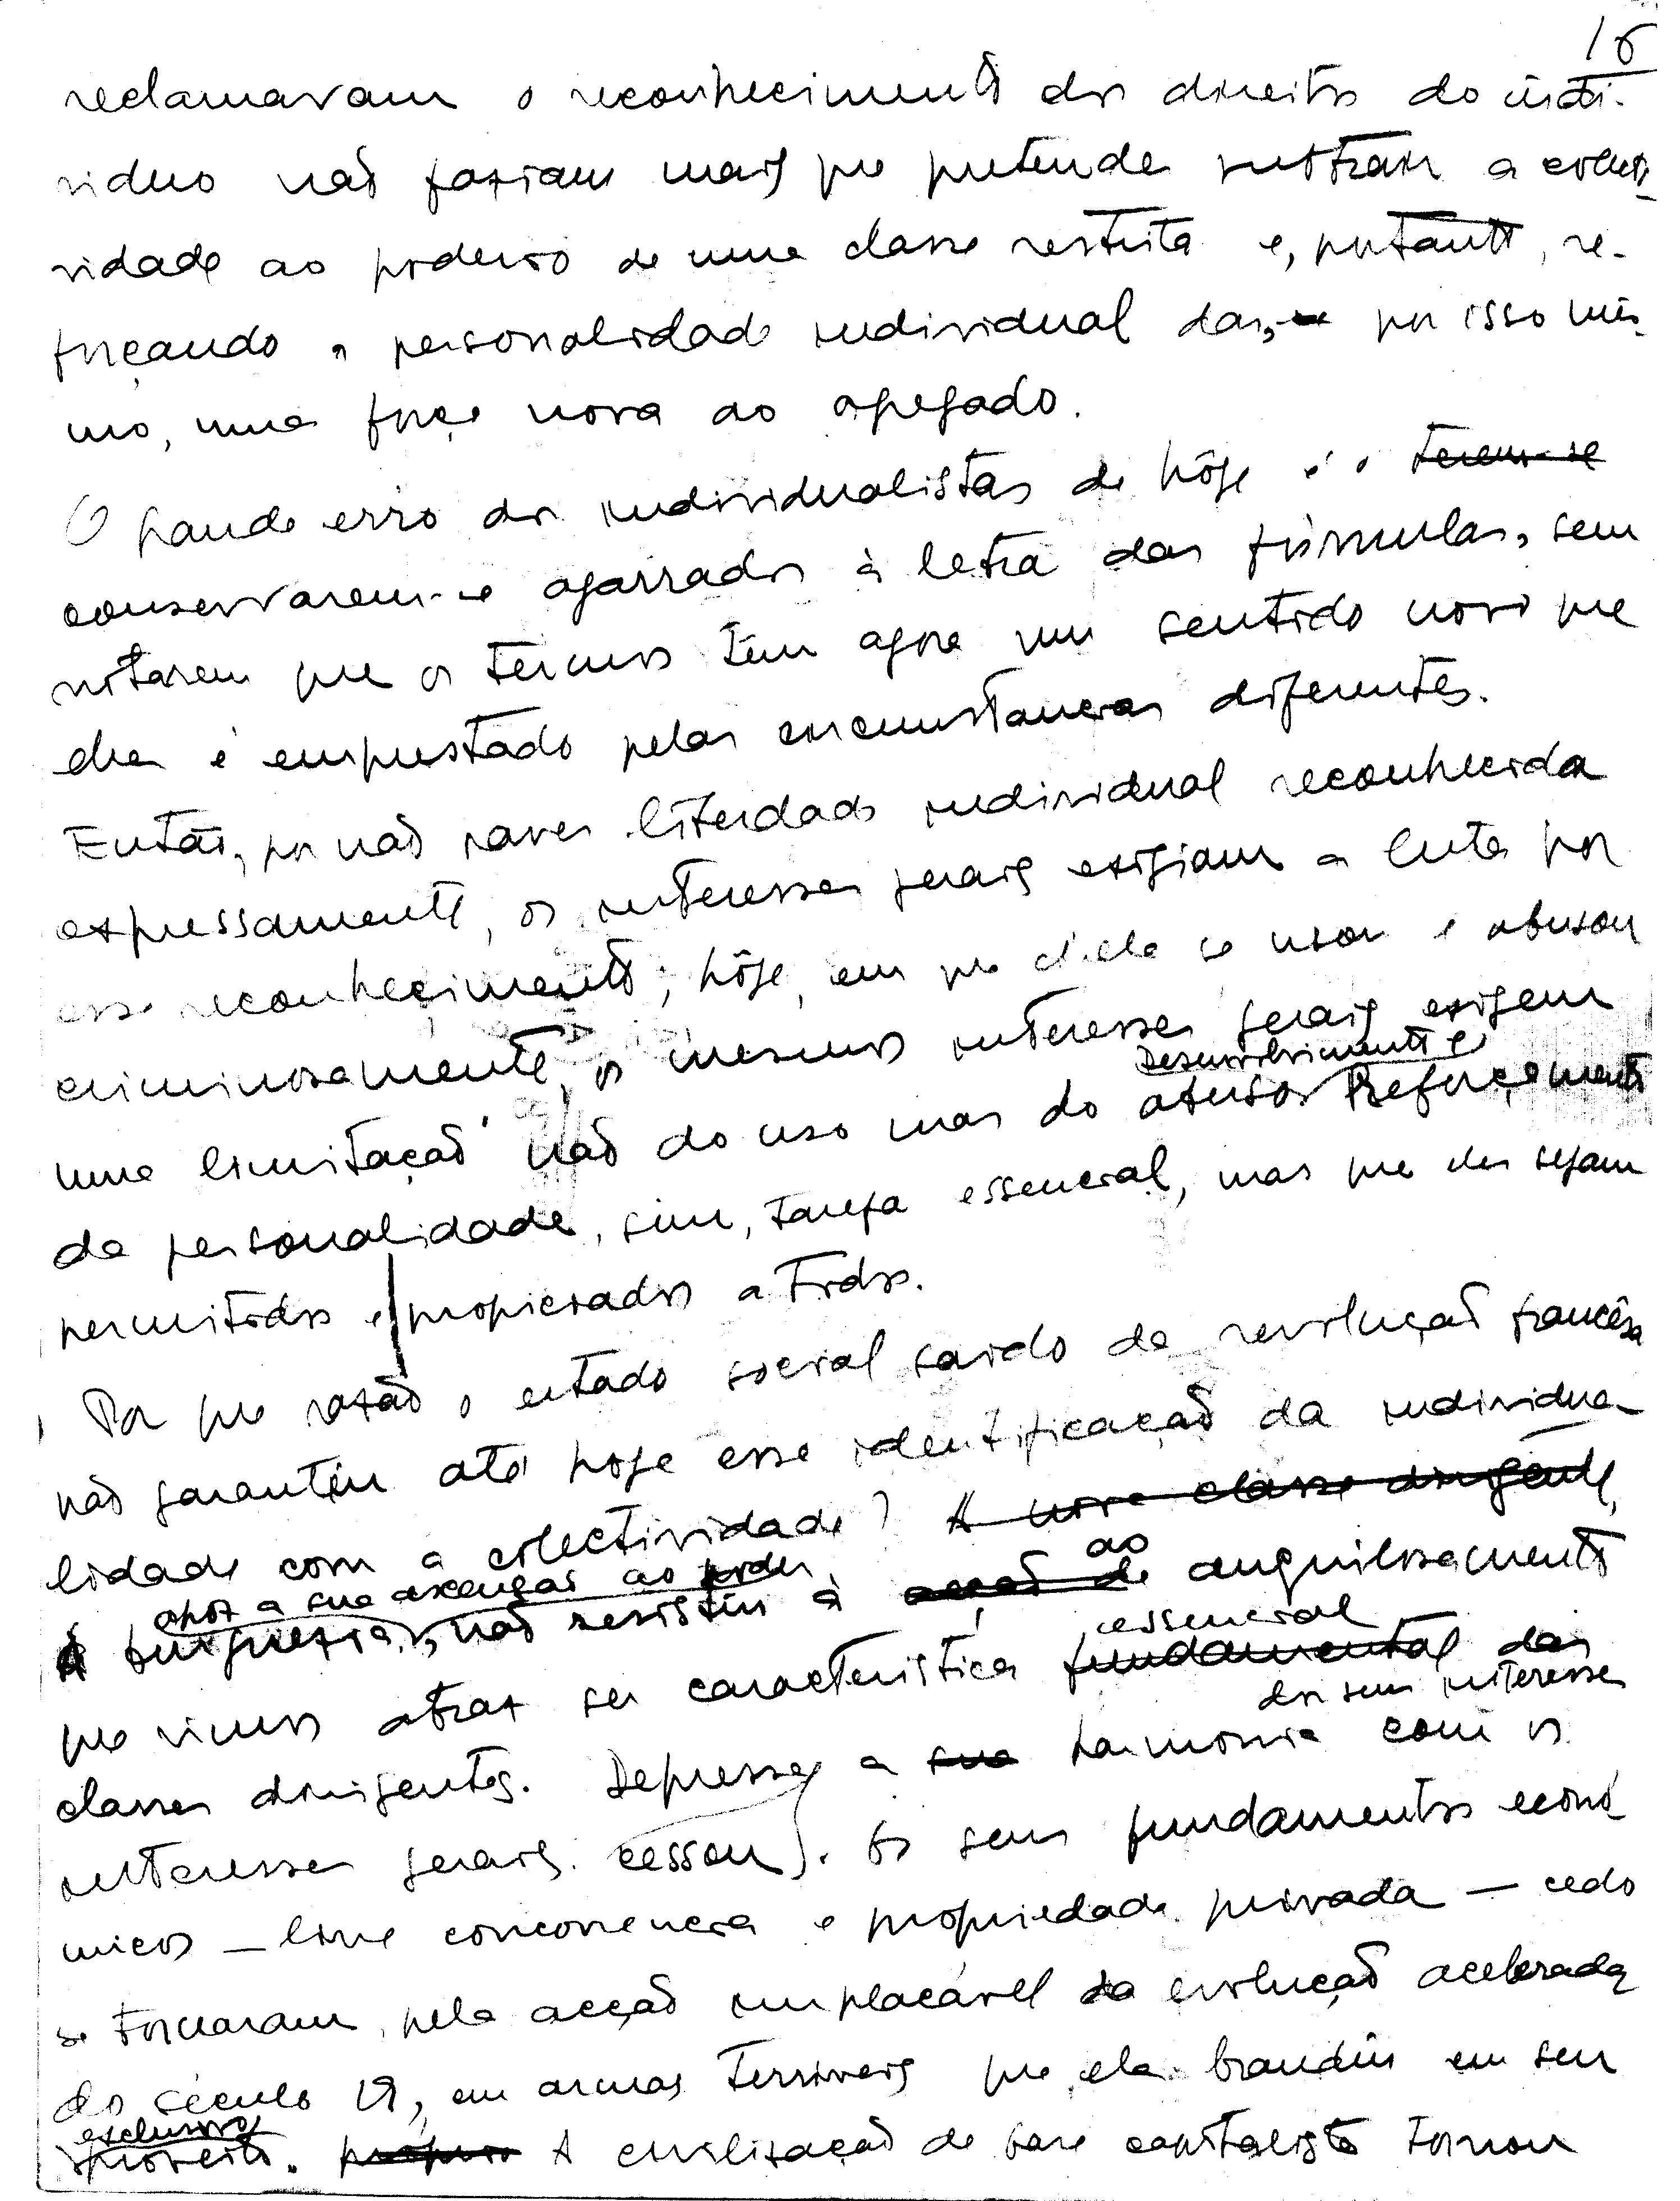 16
reclamavam o reconhecimento dos direitos do indi-
viduo não faziam mais que pretender subtrair a colecti-
vidade ao poderio de uma classe restrita e, portanto, re-
forçando a personalidade individual dar, por isso mes-
mo, uma força nova ao agregado.
O grande erro dos individualistas de hôje é o terem-se
conservarem-se agarrados à letra das fórmulas, sem
notarem que os termos têm agora um sentido novo que
lhes é emprestado pelas circunstancias diferentes.
Então, por não haver liberdade individual reconhecida
expressamente, os interesses gerais exigiam a luta por
esse reconhecimento; hôje, em que d'ela se usou e abusou
criminosamente, os mesmos interesses gerais exigem
Desenvolvimento e
uma limitação não do uso mas do abuso. Reforçamento
da personalidade, sim, tarefa essencial, mas que eles sejam
permitidos e propiciados a todos.
Por que razão o estado social saido da revolução francêsa
não garantiu até hoje essa identificação da individua-
lidade com a colectividade? A nova classe dirigente,
após a sua ascenção ao poder, ao
A burguezia, não resistiu à acção de anquilosamento
essencial
que vimos atraz ser caracteristica fundamental das
dos seus interesses
classes dirigentes. Depressa a sua harmonia com os
interesses gerais cessou. Os seus fundamentos econó-
micos — livre concorrencia e propriedade privada — cedo
se tornaram, pela acção implacável da evolução acelerada
do século 19, em armas terriveis que ela brandiu em seu
exclusivo
proveito. proprio A civilização de base capitalista tornou